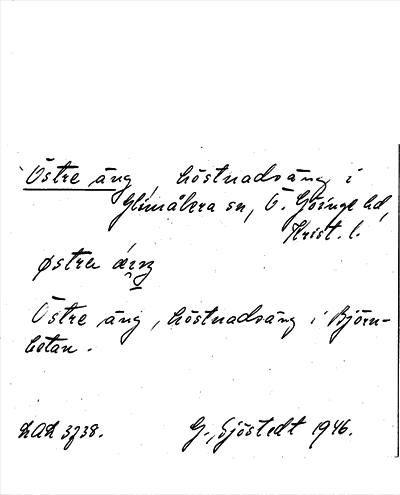 Östre äng, höstnadsäng i
Glimåkra sn, Ö. Göinge hd,
Krist. l.
østra
Östre äng, höstnadsäng i Björn-
botan.
LAL 3738.
G. Sjöstedt 1946.